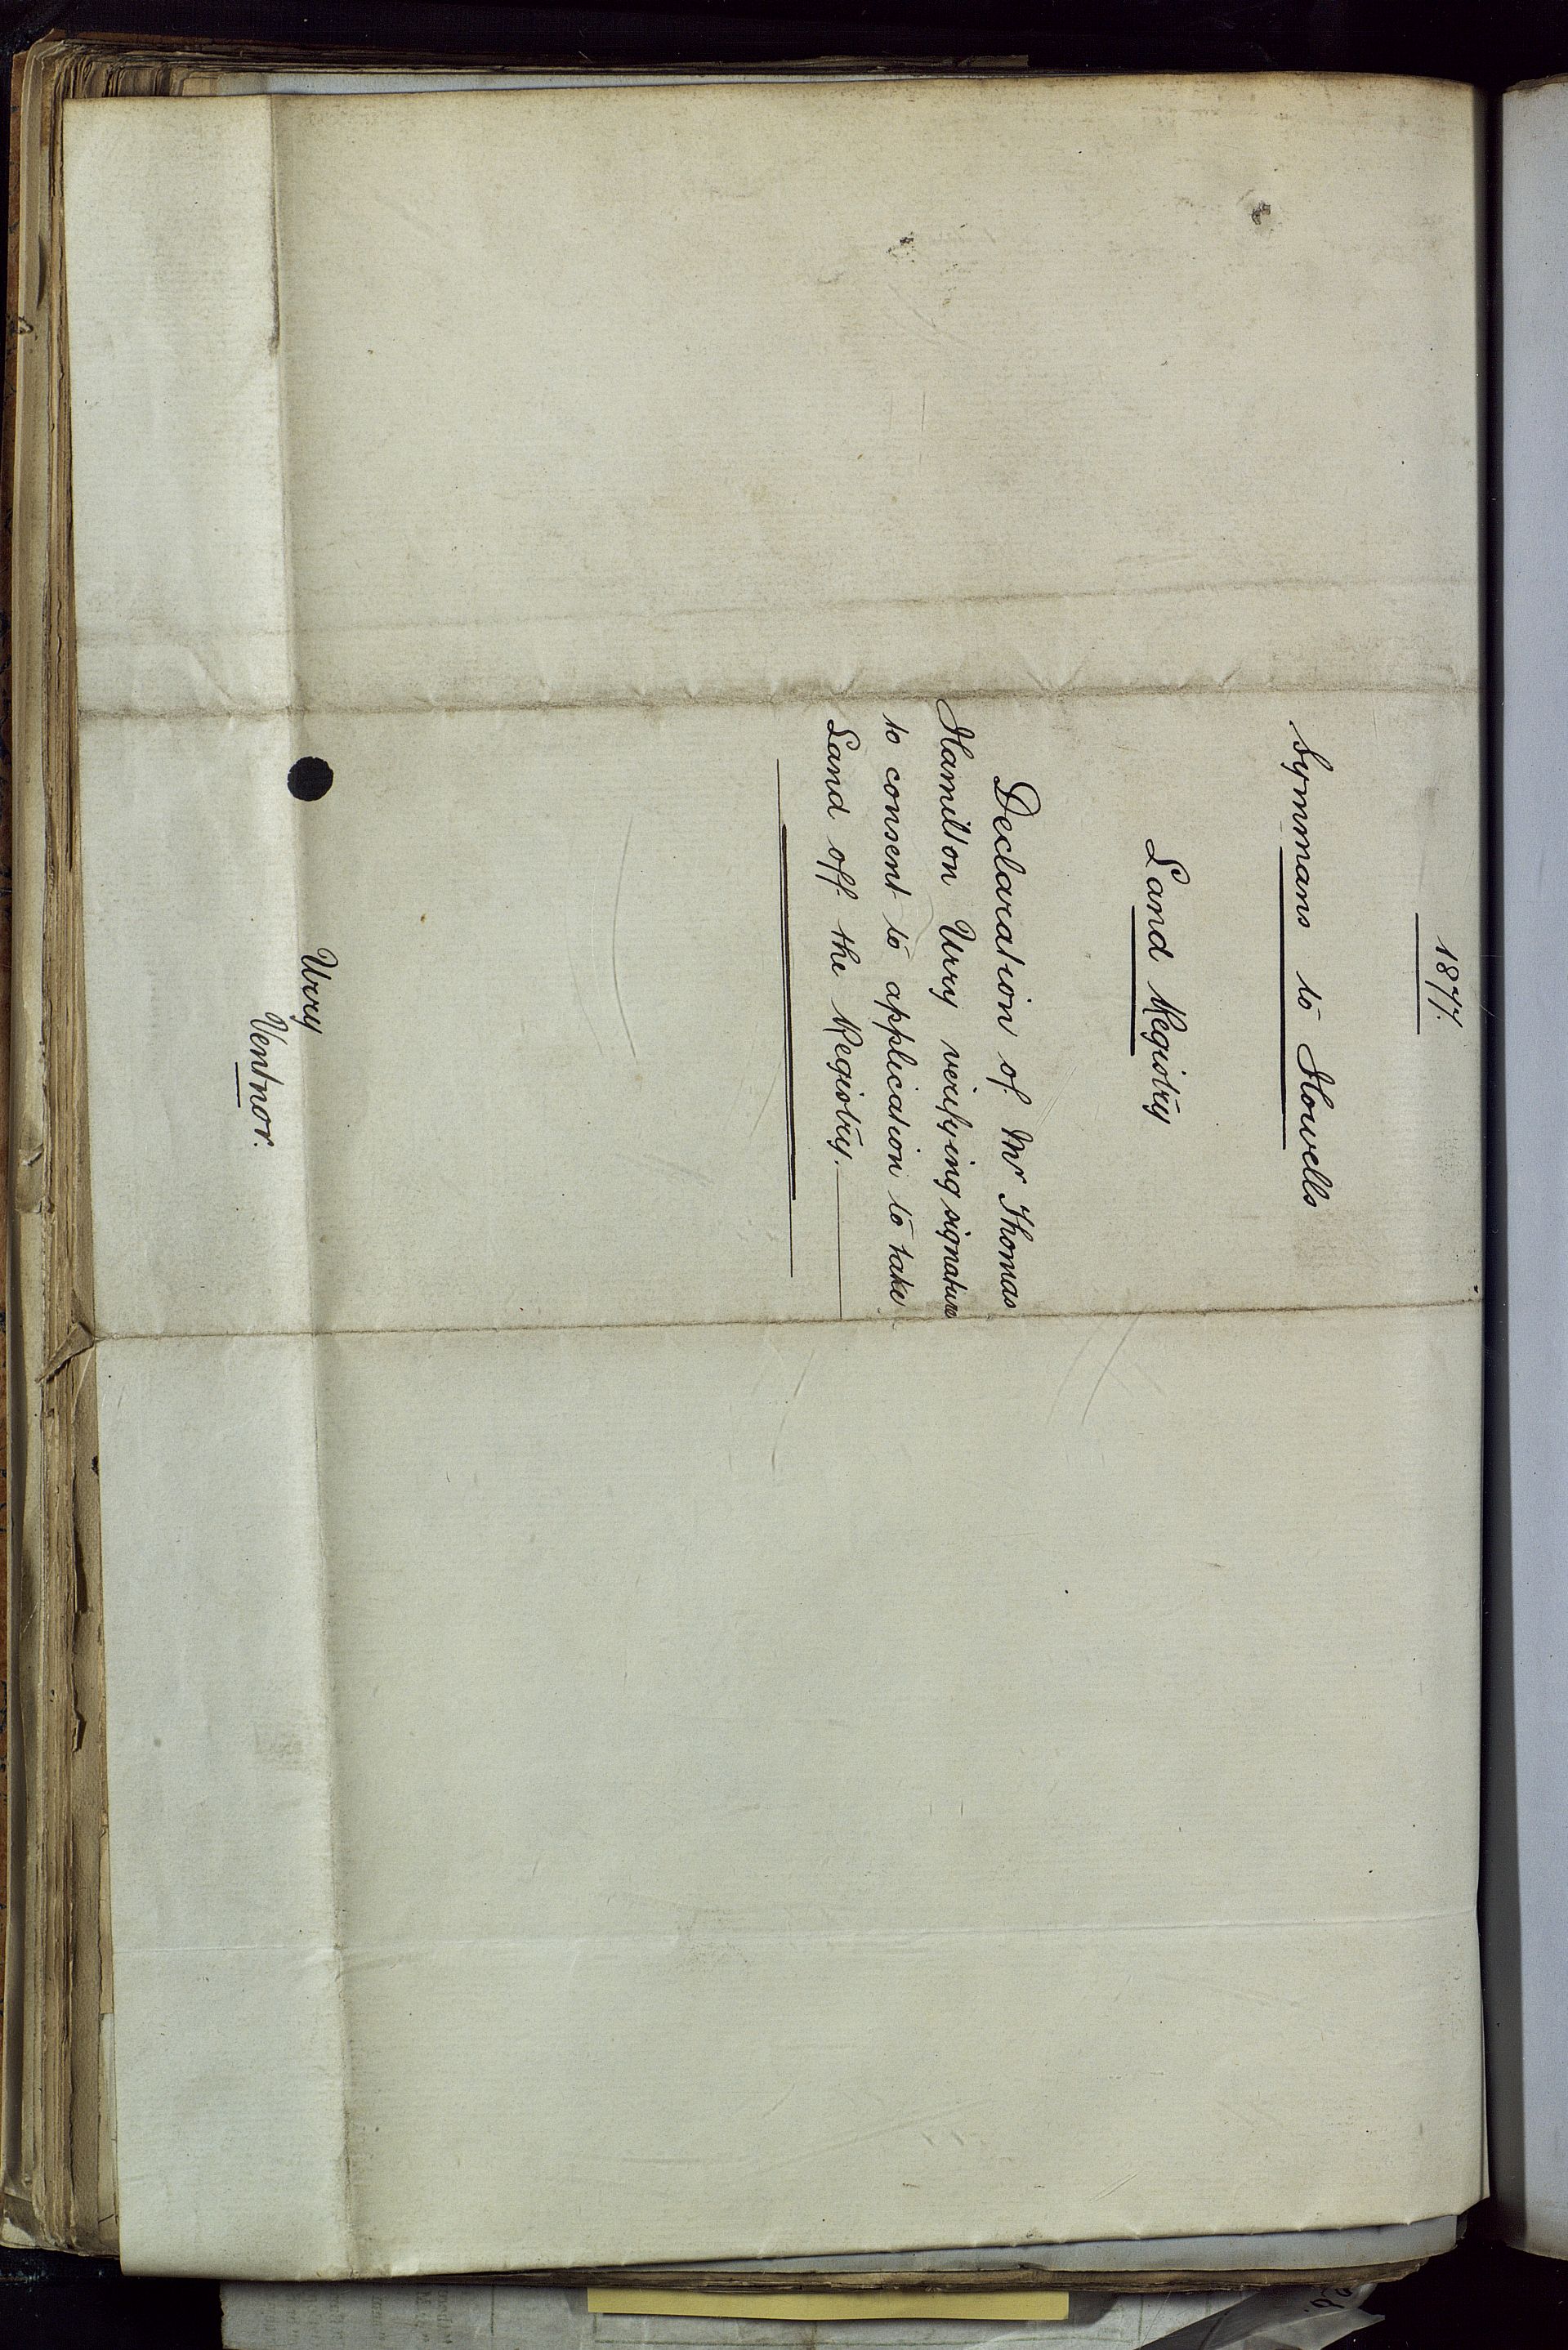 1877.
Symmans to Howells
Land Registry
Declaration of Mr Thomas
Hamilton Urry verifying signature
to consent to application to take
Land off the Registry.
Urry
Ventnor.